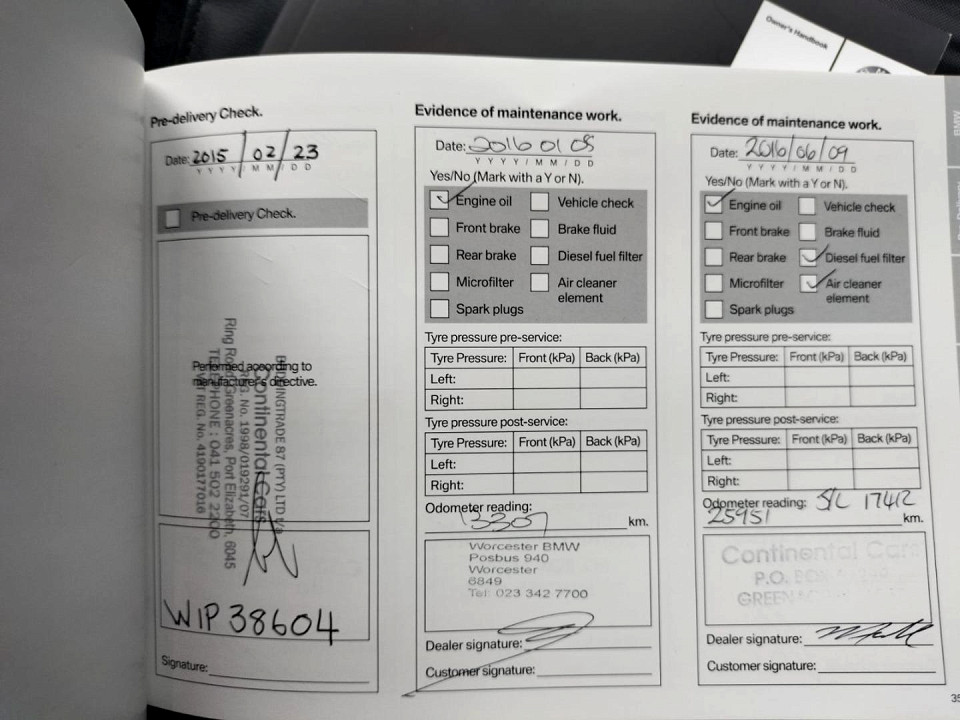 Owner's Handbook
BMW
Pre-delivery Check.
Date: 2015/02/23
Y Y Y Y / M M / D D
Pre-delivery Check.
Performed according to
manufacturer's directive.
BUILDINGTRADE 87 (PTY) LTD t/a
Continental Cars
REG. No. 1998/019291/07
Ring Road, Greenacres, Port Elizabeth, 6045
TELEPHONE : 041 502 2200
VAT REG. No. 4190177016
WIP 38604
Signature:
Evidence of maintenance work.
Date: 2016 01 05
Y Y Y Y / M M / D D
Yes/No (Mark with a Y or N).
Engine oil Vehicle check
Front brake Brake fluid
Rear brake Diesel fuel filter
Microfilter Air cleaner
element
Spark plugs
Tyre pressure pre-service:
Tyre Pressure: Front (kPa) Back (kPa)
Left:
Right:
Tyre pressure post-service:
Tyre Pressure: Front (kPa) Back (kPa)
Left:
Right:
Odometer reading:
13307 km.
Worcester BMW
Posbus 940
Worcester
6849
Tel: 023 342 7700
Dealer signature:
Customer signature:
Evidence of maintenance work.
Date: 2016/06/09
Y Y Y Y / M M / D D
Yes/No (Mark with a Y or N).
Engine oil Vehicle check
Front brake Brake fluid
Rear brake Diesel fuel filter
Microfilter Air cleaner
element
Spark plugs
Tyre pressure pre-service:
Tyre Pressure: Front (kPa) Back (kPa)
Left:
Right:
Tyre pressure post-service:
Tyre Pressure: Front (kPa) Back (kPa)
Left:
Right:
Odometer reading: S/L 17412
25951 km.
Continental Cars
P.O. BOX
Dealer signature:
Customer signature:
35